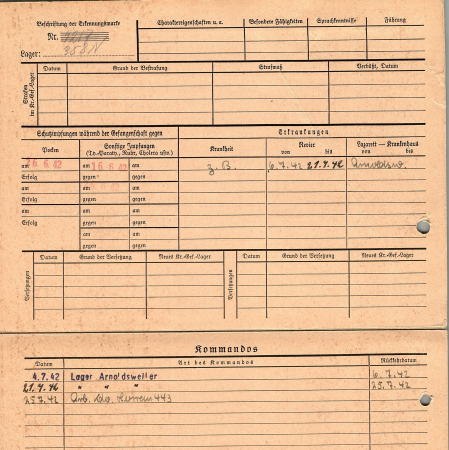 Beschriftung der Erkennungsmarke
Nr.
Lager:
Charaktereigenschaften u.a.
Besondere Fähigkeiten
Sprachkenntnisse
Führung
Strafen im Kr.-Gef.-Lager
Datum
Grund der Bestrafung
Strafmaß
Verbüßt, Datum
Schutzimpfungen während der Gefangenschaft gegen
Erkrankungen
Pocken
Sonstige Impfungen
(Ty.-Paraty., Ruhr, Cholera usw.)
Krankheit
Revier
von bis
Lazarett — Krankenhaus
von bis
am 16. 6. 42 am 16. 6. 42 am
Erfolg gegen gegen
am am am
Erfolg gegen gegen
am am am
Erfolg gegen gegen
am am
gegen gegen
z. B. 6.7.42 21.7.42
Versetzungen
Datum
Grund der Versetzung
Neues Kr.-Gef.-Lager
Versetzungen
Datum
Grund der Versetzung
Neues Kr.-Gef.-Lager
Kommandos
Datum
Art des Kommandos
Rückkehrdatum
4.7.42 Lager Arnoldsweiler 6.7.42
21.7.42 " " " 25.7.42
25.7.42 Arb. Kdo. 443